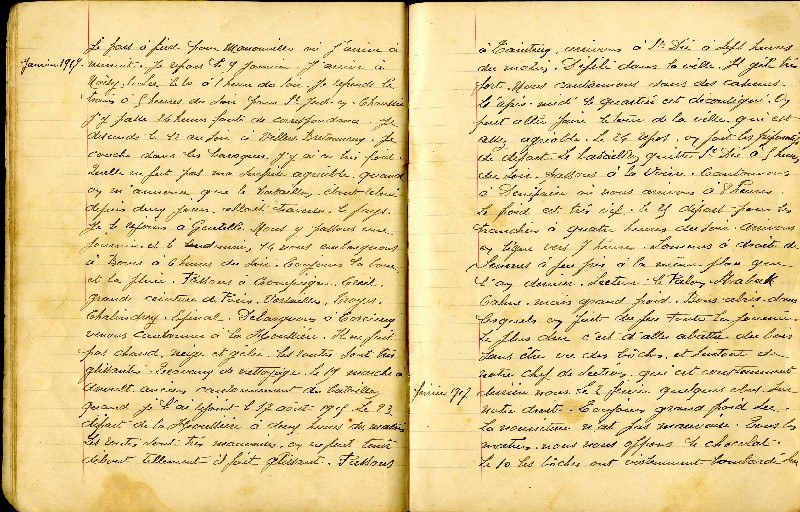 Je pars à pied pour Manonviller où j'arrive à
Janvier 1917. minuit. Je repars le 9 Janvier. J'arrive à
Noisy-le-Sec le 10 à 1 heure du soir. Je reprends le
train à 5 heures du soir pour St Just en Chaussée
J'y passe 24 heures faute de correspondance. Je
descends le 12 au soir à Villers Bretonneux. Je
couche dans les baraques. J'y ai eu bien froid.
Quelle ne fut pas ma surprise agréable quand
on m'annonce que le bataillon, étant relevé
depuis deux jours, allait traverser le pays.
Je le rejoins à Gentelle. Nous y passons une
journée et le lendemain, 14 nous embarquons
à Boves à 6 heures du soir. Toujours la boue
et la pluie. Passons à Compiègne. Creil.
grande ceinture de Paris. Versailles. Troyes.
Chalindrey. Epinal. Débarquons à Corcieux
venons cantonner à la Houssière. Il ne fait
pas chaud, neige et gelée. Les routes sont très
glissantes. Travaux de nettoyage. Le 19 marche à
ancien cantonnement du bataillon
quand je l'ai rejoint le 17 août 1915. Le 23
départ de la Houssière à deux heures du matin
Les routes sont très mauvaises, on ne peut tenir
debout tellement il fait glissant. Passons
à Taintrux, arrivons à St Dié à sept heures
du matin. Défilé dans la ville. Il gèle très
fort. Nous cantonnons dans des casernes.
Le après-midi le quartier est déconsigné. On
peut aller faire le tour de la ville, qui est
assez agréable. Le 24 repos. on fait les préparatifs
de départ. Le bataillon quitte St Dié à 5 heures
du soir. Passons à la Voivre. Cantonnons
à Denipaire où nous arrivons à 8 heures.
Le froid est très vif. Le 25 départ pour les
tranchées à quatre heures du soir. arrivons
en ligne vers 7 heures. Sommes à droite de
Senones à peu près à la même place que
l'an dernier. Secteur: le Palon,
Calme, mais grand froid. Bons abris dans
lesquels on fait du feu toute la journée.
Le plus dur c'est d'aller abattre du bois
sans être vu des bôches, et surtout de
notre chef de section, qui est constamment
Février 1917 derrière nous. Le 2 Février quelques obus sur
notre droite. Toujours grand froid sec.
La nourriture n'est pas mauvaise. Tous les
matins, nous nous offrons le chocolat.
Le 10 les bôches ont violemment bombardé sur